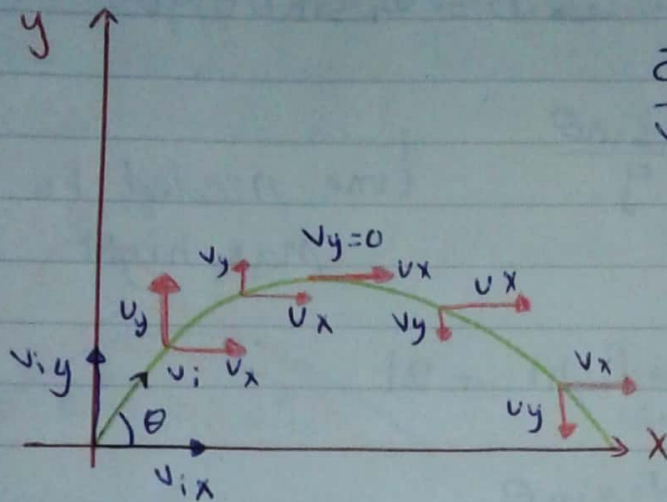 y
Vy=0
Vy
Vx
Vx
Vx
Vy
Vy
Vx
Vx
Viy
Vi
Vy
θ
X
Vix